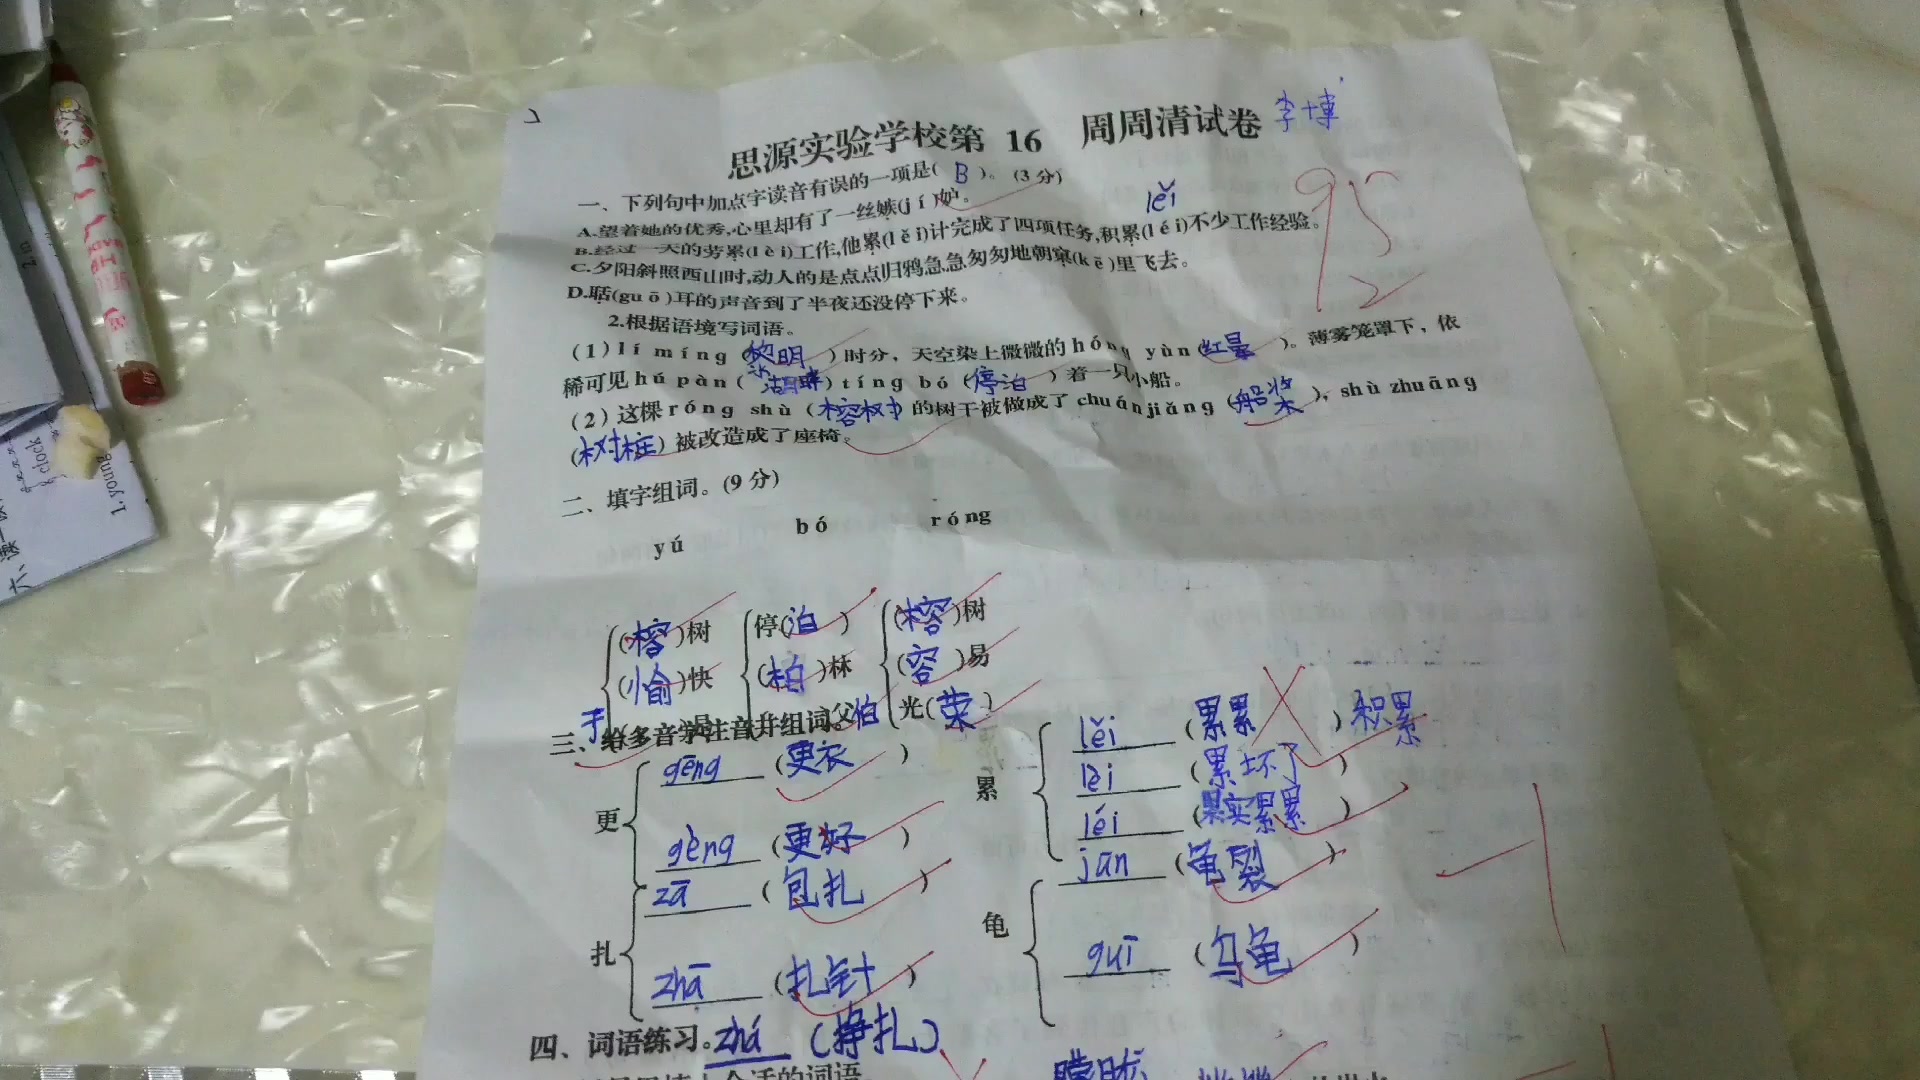 思源实验学校第 16 周周清试卷 李博
95
一、下列句中加点字读音有误的一项是( B )。(3分)
A.望着她的优秀,心里却有了一丝嫉(jí)妒。
lěi
B.经过一天的劳累(lèi)工作,他累(lěi)计完成了四项任务,积累(léi)不少工作经验。
C.夕阳斜照西山时,动人的是点点归鸦急急匆匆地朝窠(kē)里飞去。
D.聒(guō)耳的声音到了半夜还没停下来。
2
2.根据语境写词语。
(1)lí míng(黎明)时分，天空染上微微的hóng yùn(红晕)。薄雾笼罩下，依
稀可见hú pàn(湖畔)tíng bó(停泊)着一只小船。
(2)这棵róng shù(榕树)的树干被做成了chuánjiǎng(船桨)，shù zhuāng
(树桩)被改造成了座椅。
二、填字组词。(9分)
yú bó róng
(榕)树 停(泊) (榕)树
(愉)快 (柏)林 (容)易
父伯 光(荣)
三、给多音字注音并组词。
更 gēng (更衣)
gèng (更好)
扎 zā (包扎)
zhā (扎针)
zhá (挣扎)
累 lěi (累累) 积累
lèi (累坏了)
léi (果实累累)
龟 jūn (龟裂)
guī (乌龟)
-1
四、词语练习。
朦胧
六、读一读
clock
1. young